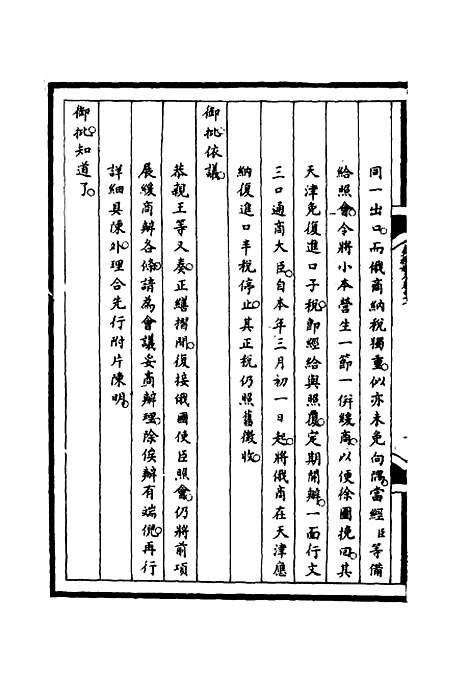 同一出口。而俄商納稅獨重。似亦未免向隅。當經臣等備
給照會。令將小本營生一節一併緩商。以便徐圖挽回。其
天津免復進口子稅。即經給與照覆。定期開辦。一面行文
三口通商大臣。自本年三月初一日起。將俄商在天津應
納復進口半稅停止。其正稅仍照舊徵收。
御批依議。
恭親王等又奏。正繕摺間。復接俄國使臣照會。仍將前項
展緩商辦各條。請為會議妥商辦理。除俟辦有端倪。再行
詳細具陳外。理合先行附片陳明。
御批知道了。